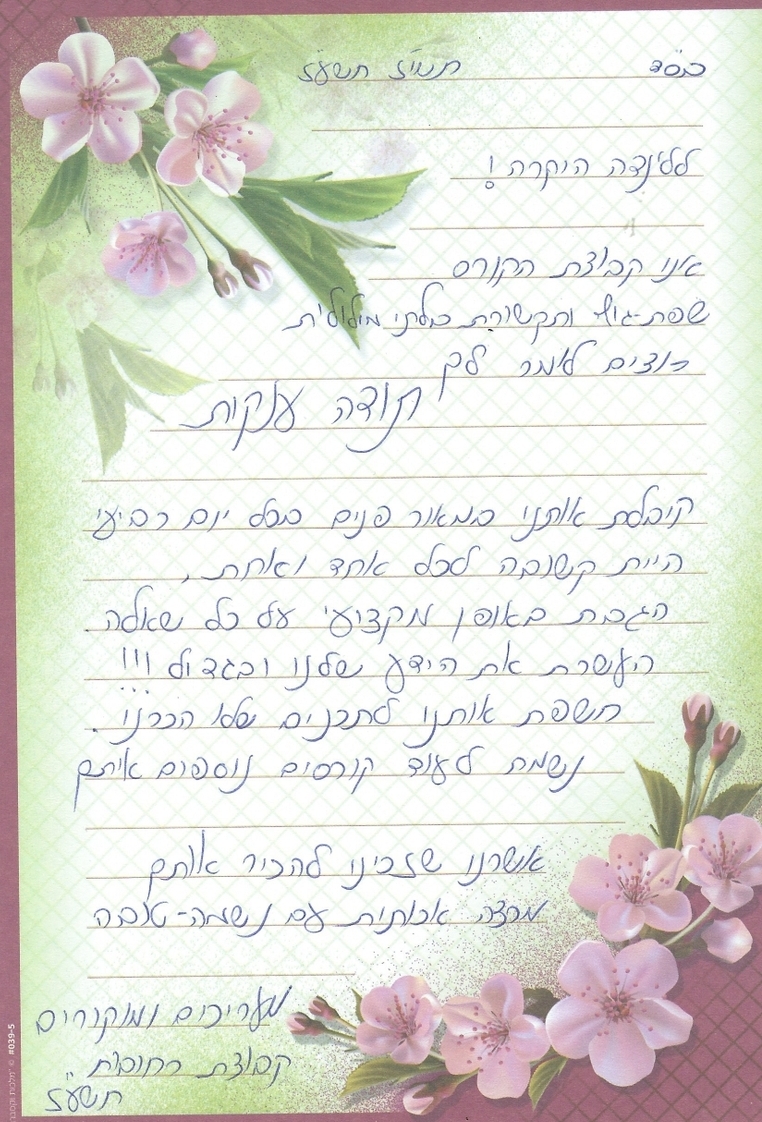 בס"ד תמוז תשע"ז
ללינדה היקרה!
אנו קבוצת הקורס
שפת-גוף ותקשורת בלתי מילולית
רוצים לומר לך
תודה ענקית
קיבלת אותנו במאור פנים בכל יום רביעי
היית קשובה לכל אחד ואחת,
הגבת באופן מקצועי על כל שאלה
העשרת את הידע שלנו ובגדול!!!
חשפת אותנו לתכנים שלא הכרנו.
נשמח לעוד קורסים נוספים איתך
אושרנו שזכינו להכיר אותך
מרצה איכותית עם נשמה-טובה
מעריכים ומוקירים
קבוצת רחובות
תשע"ז
#039-5 ©